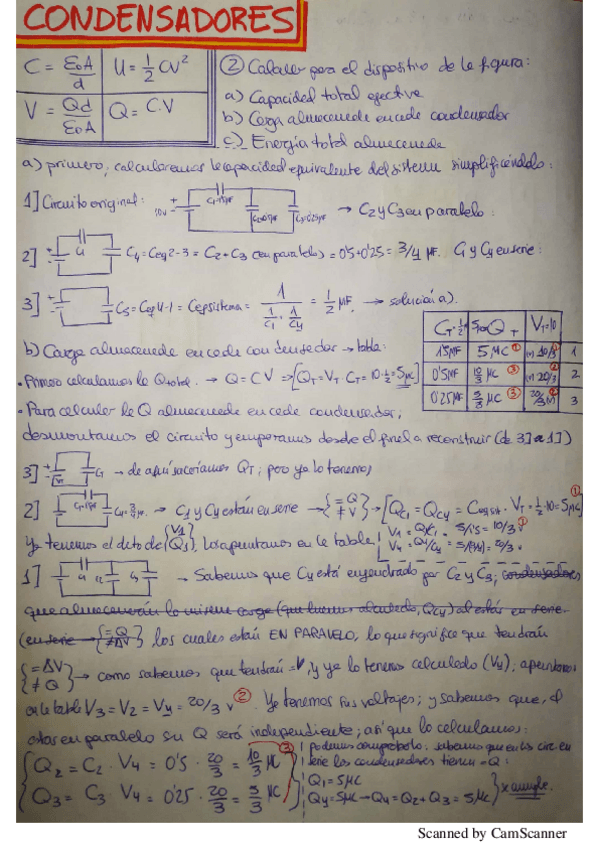 CONDENSADORES
C = ε₀A/d
U = 1/2 CV²
V = Qd/ε₀A
Q = C.V
② Calcular para el dispositivo de la figura:
a) Capacidad total efectiva
b) Carga almacenada en cada condensador
c) Energía total almacenada
a) primero, calcularemos la capacidad equivalente del sistema simplificándolo:
1] Circuito original: 10V → C2 y C3 en paralelo:
2] C4 = Ceq 2-3 = C2 + C3 (en paralelo) = 0'5 + 0'25 = 3/4 μF. C1 y C4 en serie:
3] C5 = Ceq 4-1 = Ceqsistema = 1/(1/C1 + 1/C4) = 1/2 μF. → solución a).
b) Carga almacenada en cada condensador → tabla:
QT VT=10
1'5 μF 5 μC ① 10/3 1
0'5 μF 10/3 μC ③ 20/3 ② 2
0'25 μF 5/3 μC ③ 20/3 ② 3
· Primero calculamos la Q total. → Q = C V ⇒ [QT = VT · CT = 10 · 1/2 = 5 μC]
· Para calcular la Q almacenada en cada condensador,
desmontamos el circuito y empezamos desde el final a reconstruir (de 3] a 1])
3] → de aquí sacaríamos QT; pero ya lo tenemos
2] → C1 y C4 están en serie → {= Q ≠ V} → [QC1 = QC4 = · VT = 1/2 · 10 = 5 μC] ①
V1 = Q/C1 = 5/1'5 = 10/3 V ①
V4 = Q4/C4 = 5/(3/4) = 20/3 V
Ya tenemos el dato de {V1 Q1}, los apuntamos en la tabla
1] → Sabemos que C4 está engendrado por C2 y C3, condensadores
que almacenarán la misma carga (que hemos calculado, QC4) al estar en serie
(en serie → {= Q ≠ ΔV}, los cuales están EN PARALELO, lo que significa que tendrán
{= ΔV ≠ Q} → como sabemos que tendrán = V, y ya lo tenemos calculado (V4), apuntamos
en la tabla V3 = V2 = V4 = 20/3 V ② Ya tenemos sus voltajes; y sabemos que, al
estar en paralelo su Q será independiente; así que lo calculamos:
Q2 = C2 · V4 = 0'5 · 20/3 = 10/3 μC ③
Q3 = C3 · V4 = 0'25 · 20/3 = 5/3 μC
podemos comprobarlo: sabemos que en los circ. en
serie los condensadores tienen = Q:
Q1 = 5 μC
Q4 = 5 μC → Q4 = Q2 + Q3 = 5 μC } se cumple.
Scanned by CamScanner